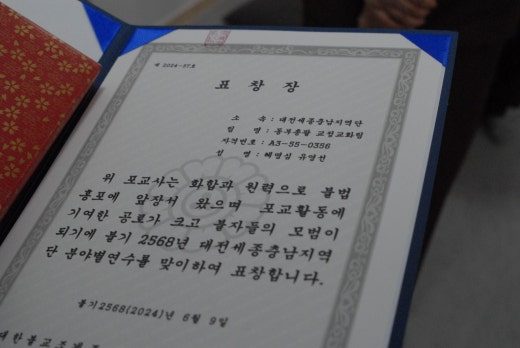 제 2024-37호
표 창 장
소 속 : 대전세종충남지역단
팀 명 : 동부총괄 교정교화팀
자격번호 : A3-55-0356
성 명 : 혜명심 유영선
위 포교사는 화합과 원력으로 불법
홍포에 앞장서 왔으며 포교활동에
기여한 공로가 크고 불자들의 모범이
되기에 불기 2568년 대전세종충남지역
단 분야별연수를 맞이하여 표창합니다.
불기2568(2024)년 6월 9일
대한불교조계종